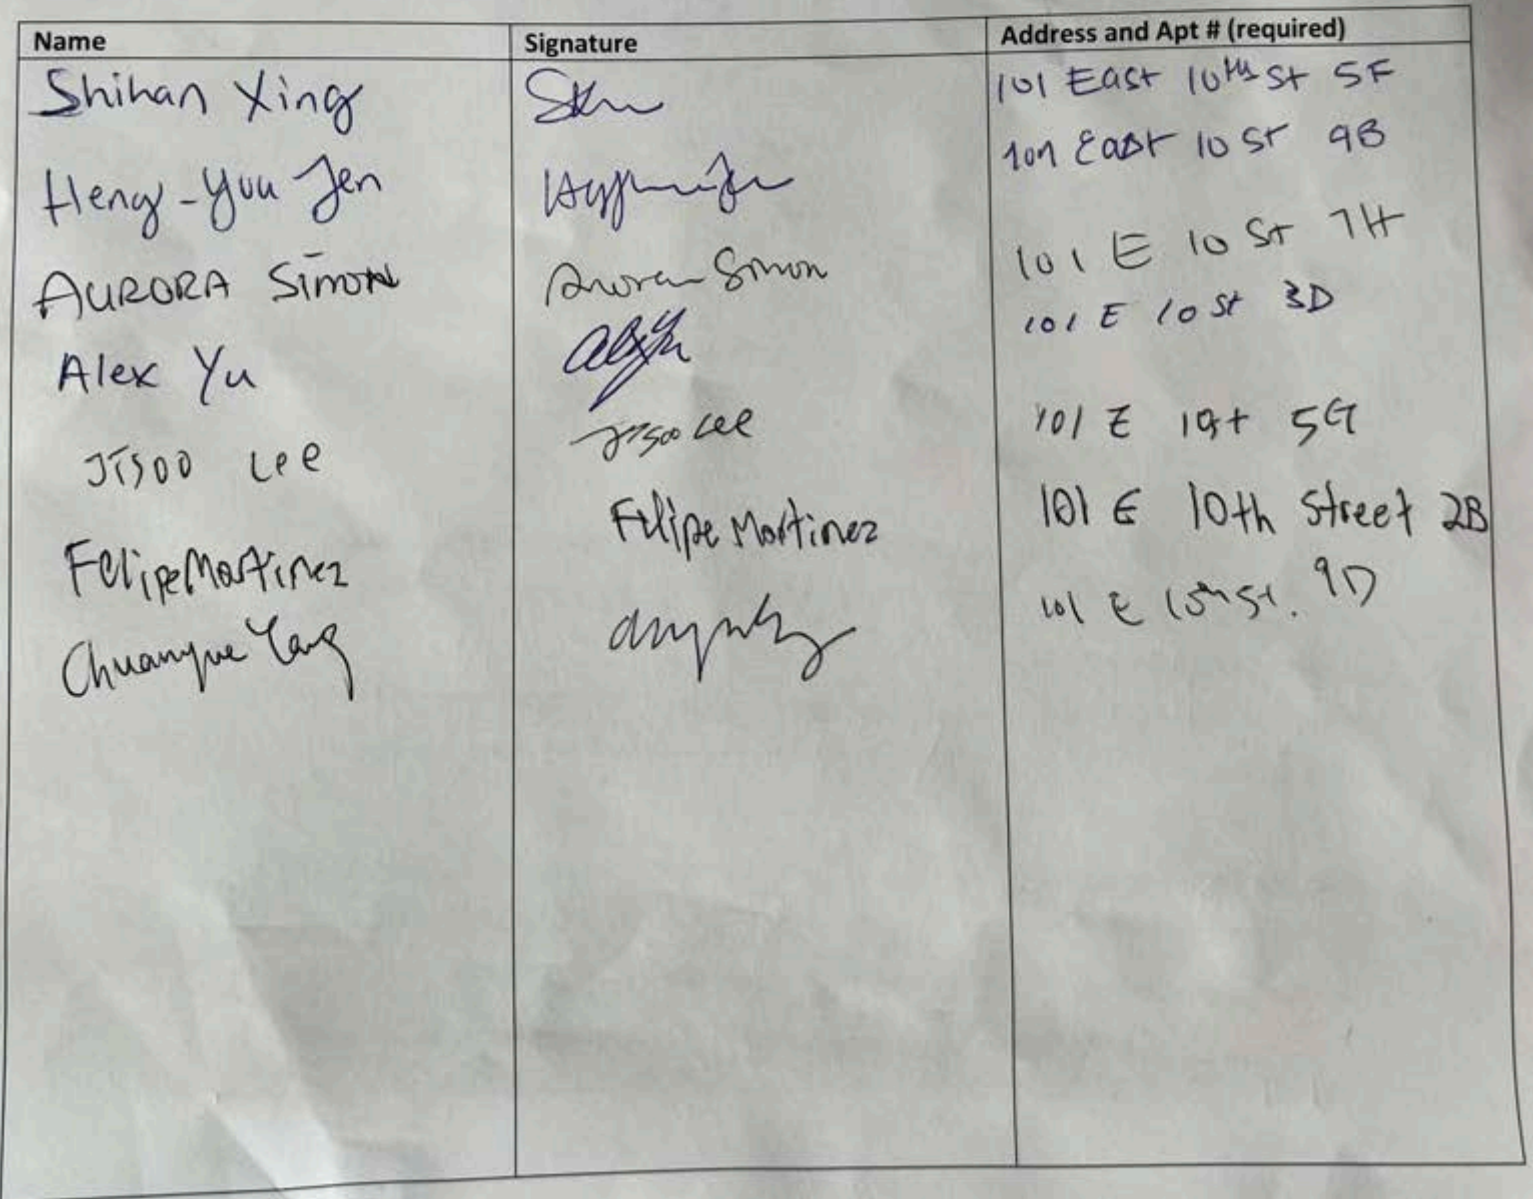 Name Signature Address and Apt # (required)
Shihan Xing 101 East 10th St 5F
Heng-Yuu Jen 101 East 10 St 9B
AURORA SIMON Aurora Simon 101 E 10 St 7H
Alex Yu Alex Yu 101 E 10 St 3D
JISOO Lee Jisoo Lee 101 E 5G
Felipe Martinez Felipe Martinez 101 E 10th Street 2B
Chuanyue Yang 101 E St. 9D